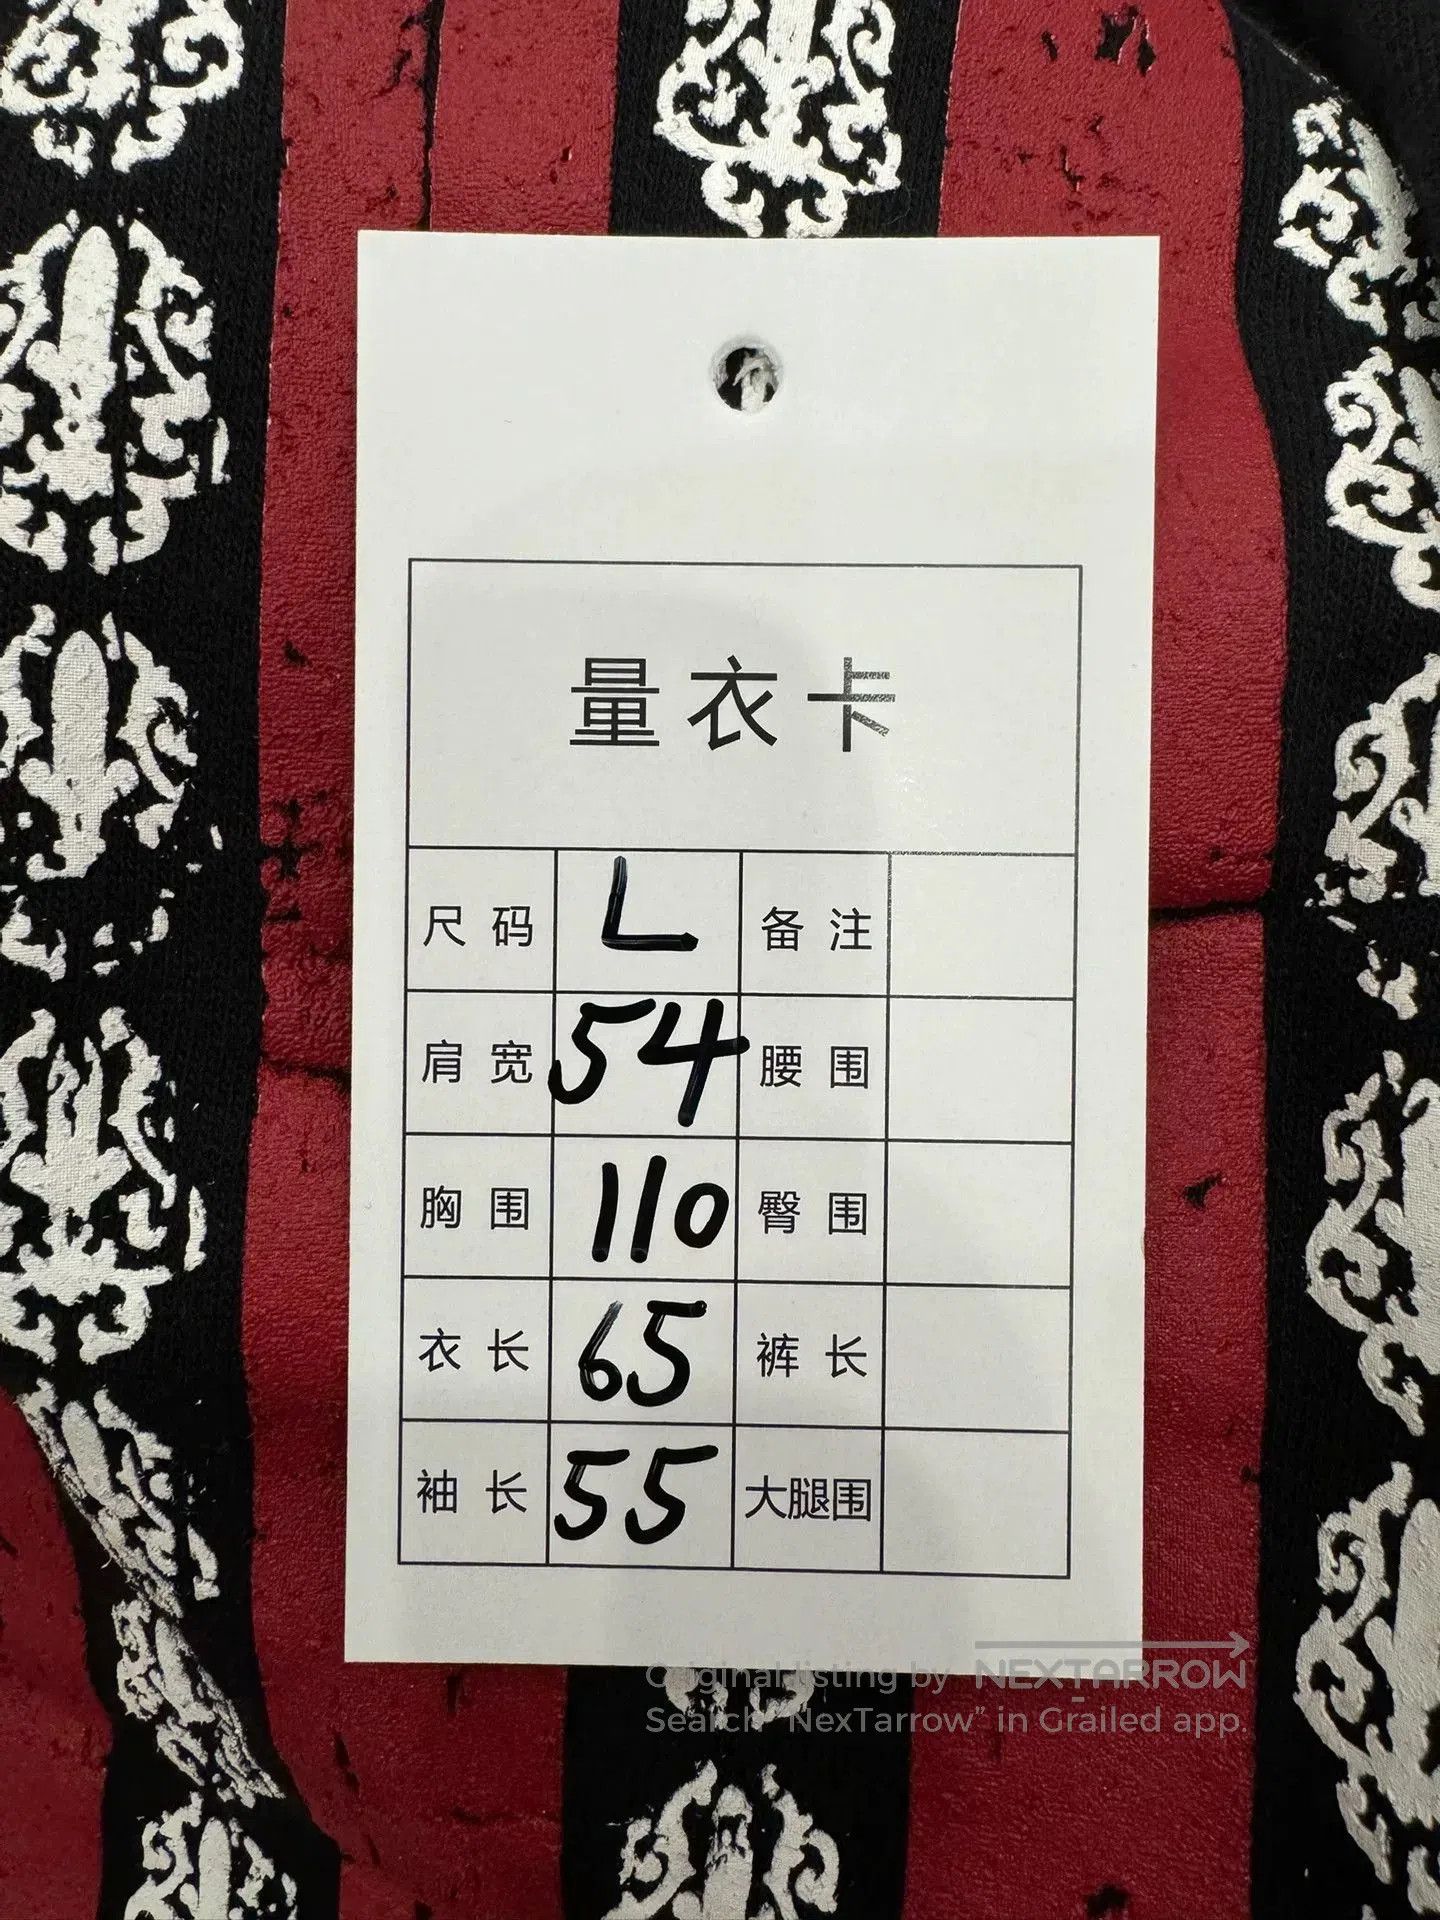 量衣卡
尺码 L 备注
肩宽 54 腰围
胸围 110 臀围
衣长 65 裤长
袖长 55 大腿围
Original listing by NEXTARROW
Search "NexTarrow" in Grailed app.